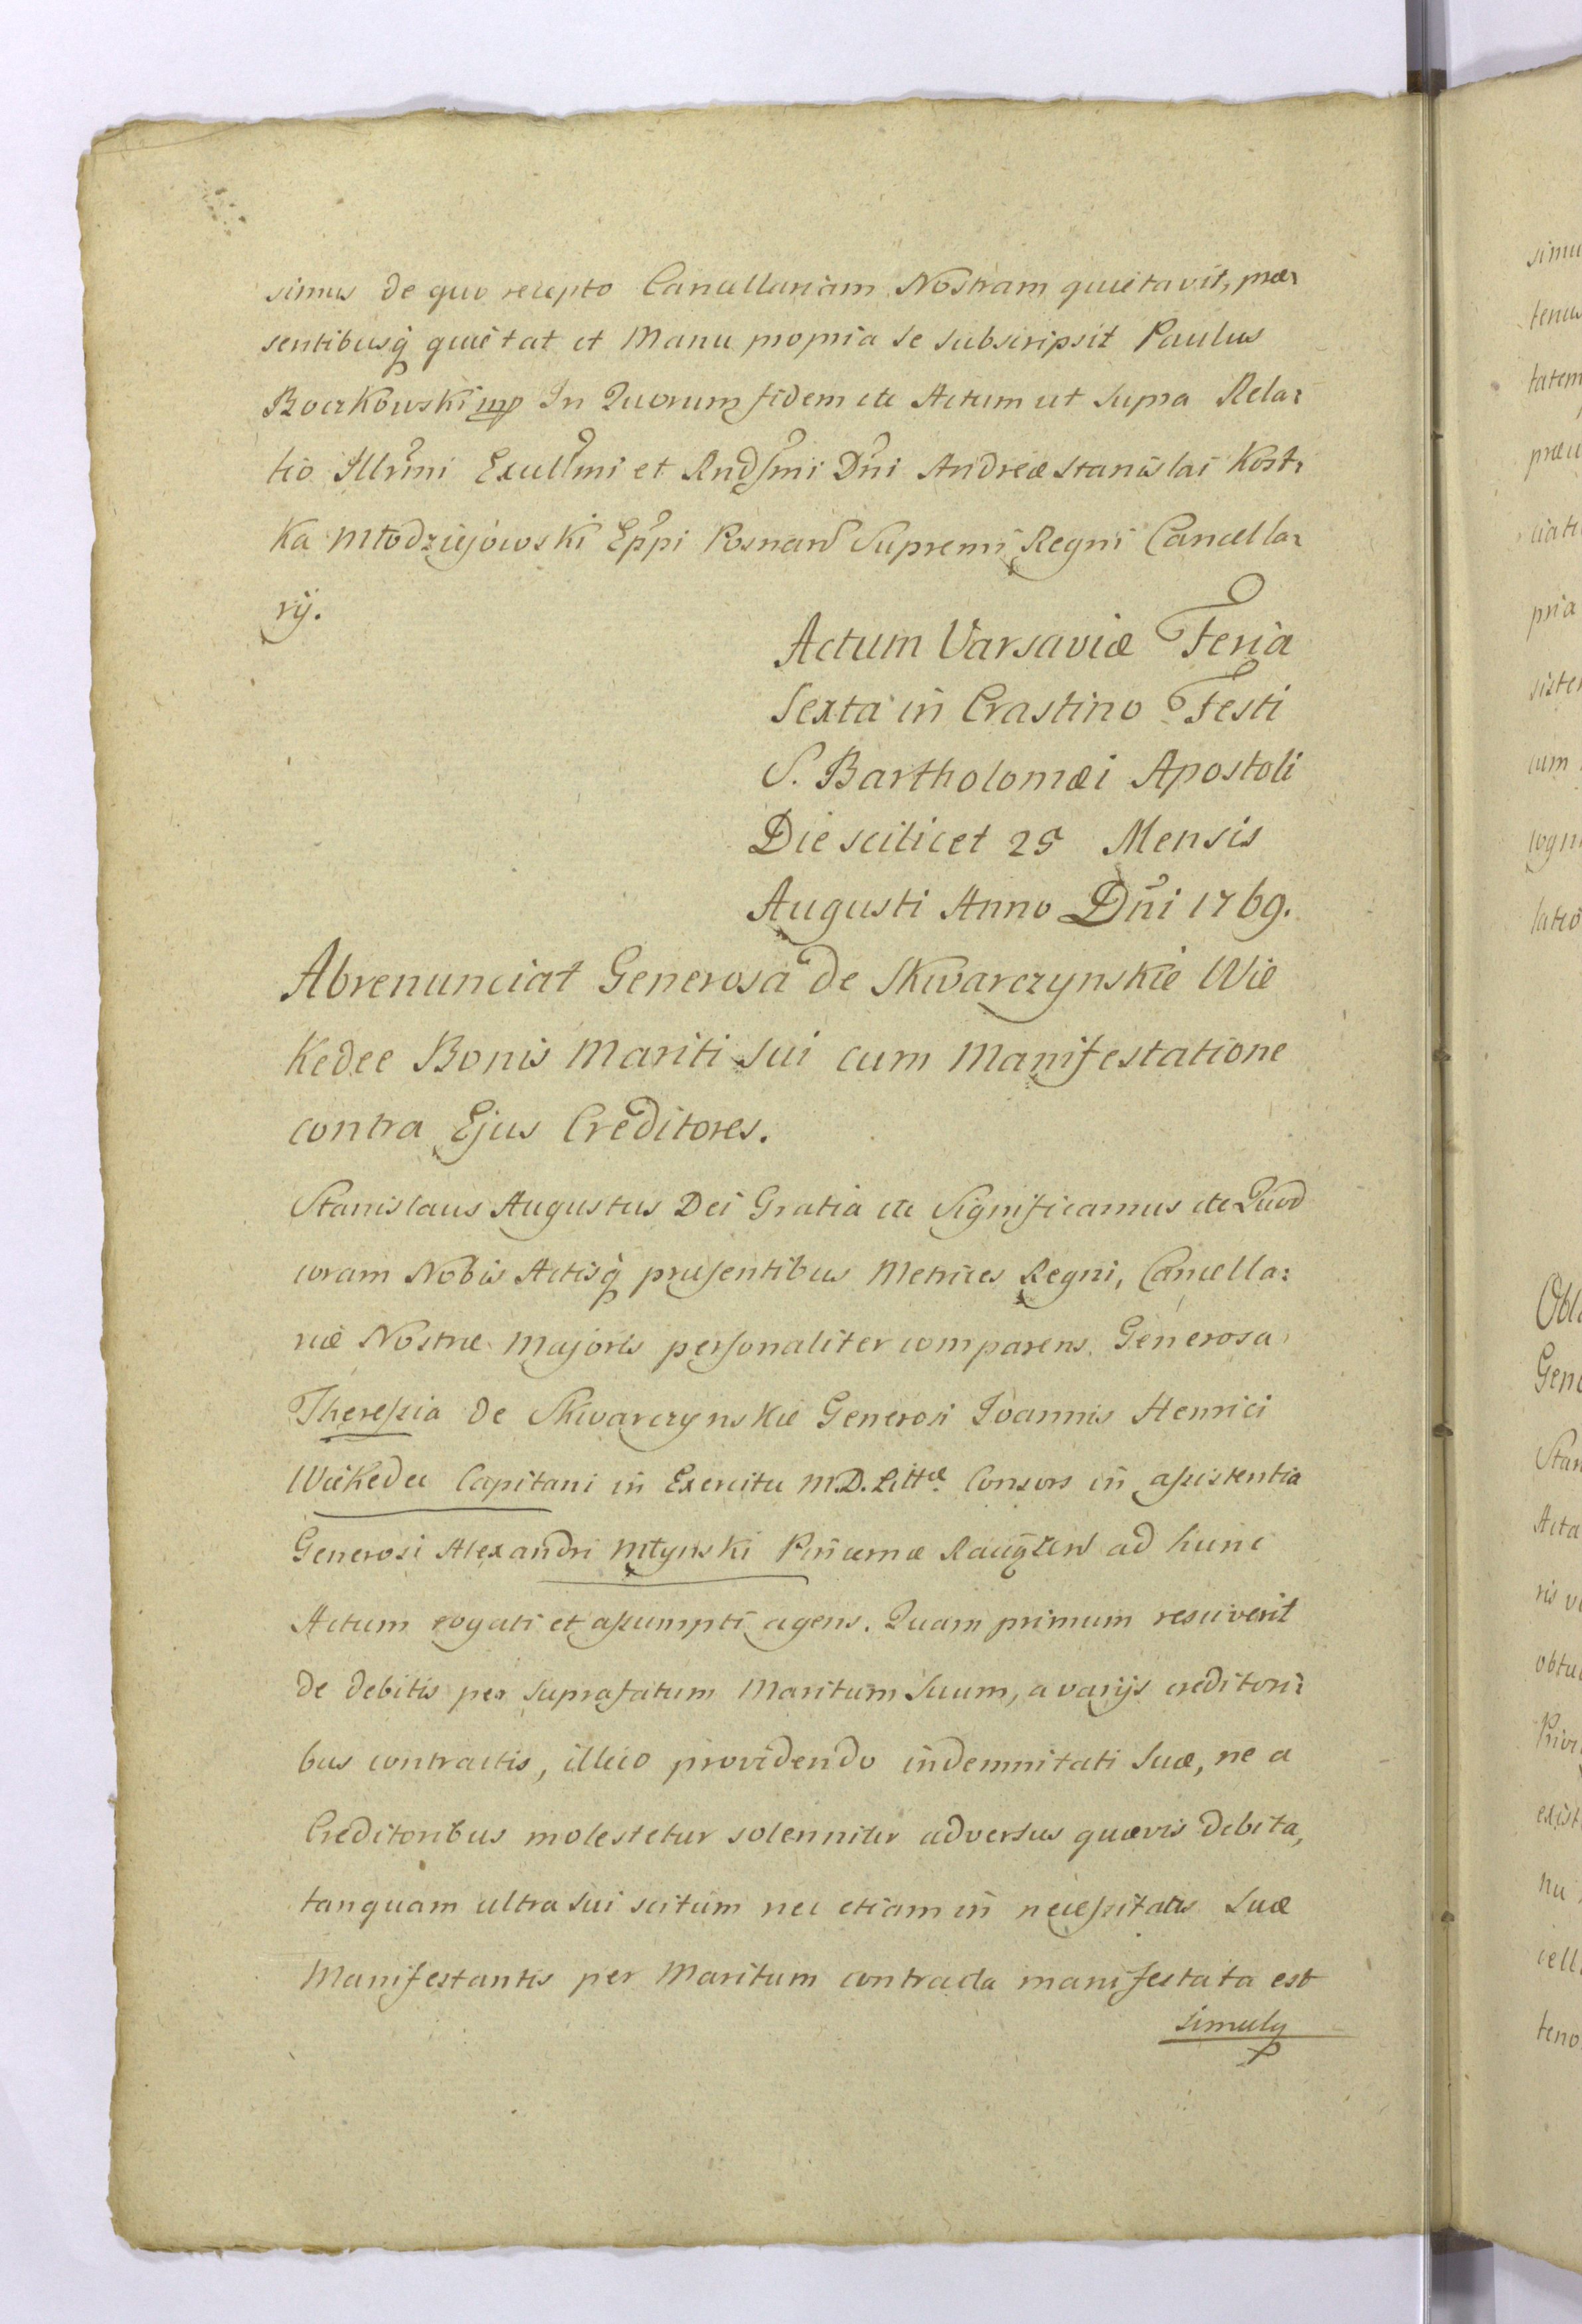 simus de quo recepto Cancellariam Nostram quietavit, præ:
sentibusq̃ quietat et Manu propria se subscripsit Paulus
Boczkowski mp In Quorum fidem etc Actum ut supra Rela:
tio Illr̃mi Excell̃mi et Rnd̃smi Dñi Andreæ Stanislai Kost:
ka Młodziejowski Epp̃i Posnan̄ Supremi Regni Cancella:
rij.
Actum Varsaviæ Feria
Sexta in Crastino Festi
S. Bartholomæi Apostoli
Die scilicet 25 Mensis
Augusti Anno Dñi 1769.
Abrenunciat Generosa de Skwarczynskie Wie
kedee Bonis Mariti sui cum Manifestatione
contra Ejus Creditores.
Stanislaus Augustus Dei Gratia etc Significamus etc Quod
coram Nobis Actisq̃ præsentibus Metrices Regni, Cancella:
riæ Nostræ Majoris personaliter comparens Generosa
Theressia de Skwarczynskie Generosi Joannis Henrici
Wiekedee Capitani in Exercitu M.D. Littæ Consors in assistentia
Generosi Alexandri Młynski Pincernæ ad hunc
Actum rogati et assumpti agens. Quam primum resciverit
de debitis per suprafatum Maritum Suum, a varijs creditori:
bus contractis, illico providendo indemnitati Suæ, ne a
Creditoribus molestetur solenniter adversus quævis debita,
tanquam ultra sui scitum nec etiam in necessitates Suæ
Manifestantis per Maritum contracta manifestata est
simulq̃
simu
tenus
tatem
præ
pria
sister
cum
cogn
latio
Obla
Gene
Stan
Acta
ris
obtu
exist
nu
cell
teno